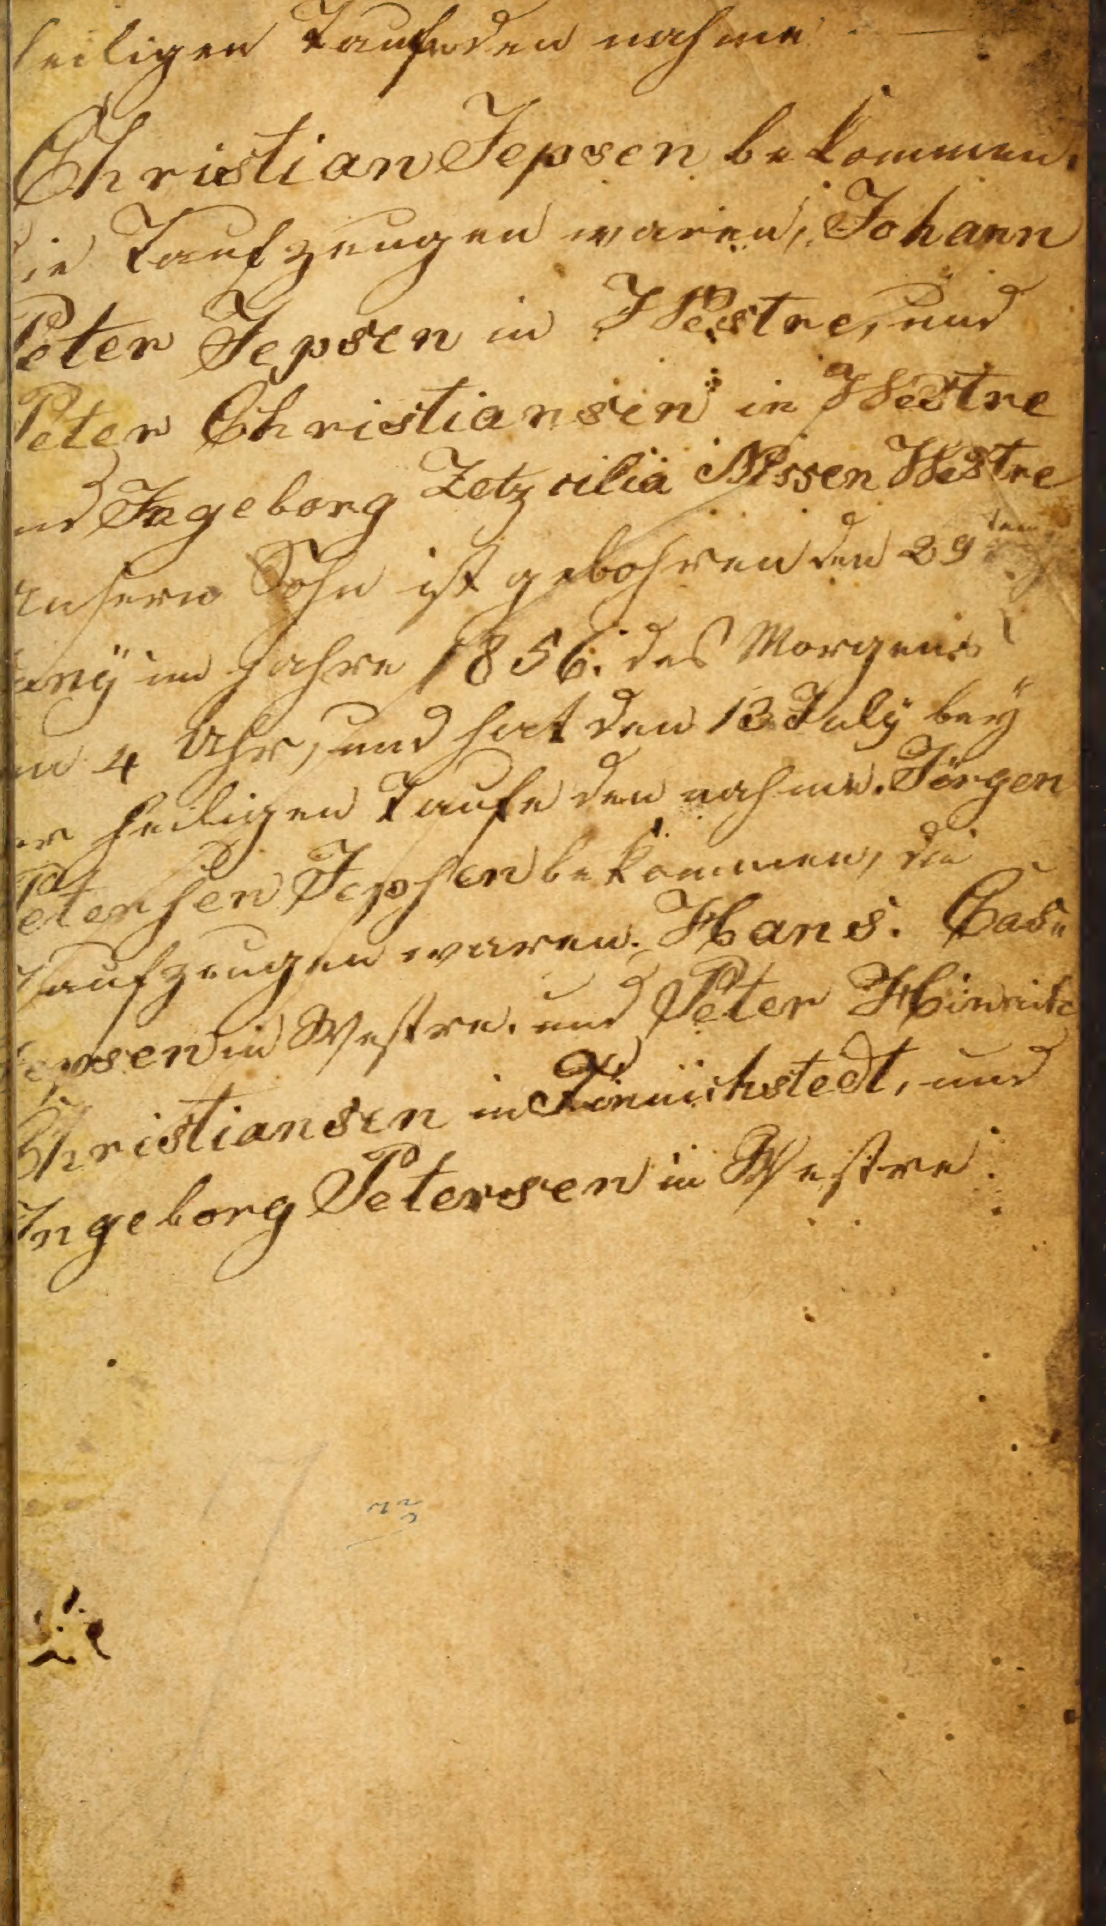 heiligen Taufe den nahme
Christian Jepsen bekommen.
die Taufzeugen waren, Johann
Peter Jepsen in Westre, und
Peter Christiansen in Westre
und Ingeborg Zetzcilia Nissen Westre
unsern Sohn ist gebohren den 29ten
Juny im Jahre 1856. des Morgens
um 4 Uhr, und hat den 13 July bey
der heiligen Taufe den nahme. Jörgen
Petersen Jepsen bekommen, die
Taufzeugen waren. Hans.
Jepsen in Westre. und Peter Hinrich
Christiansen in und
Ingeborg Petersen in Westre.